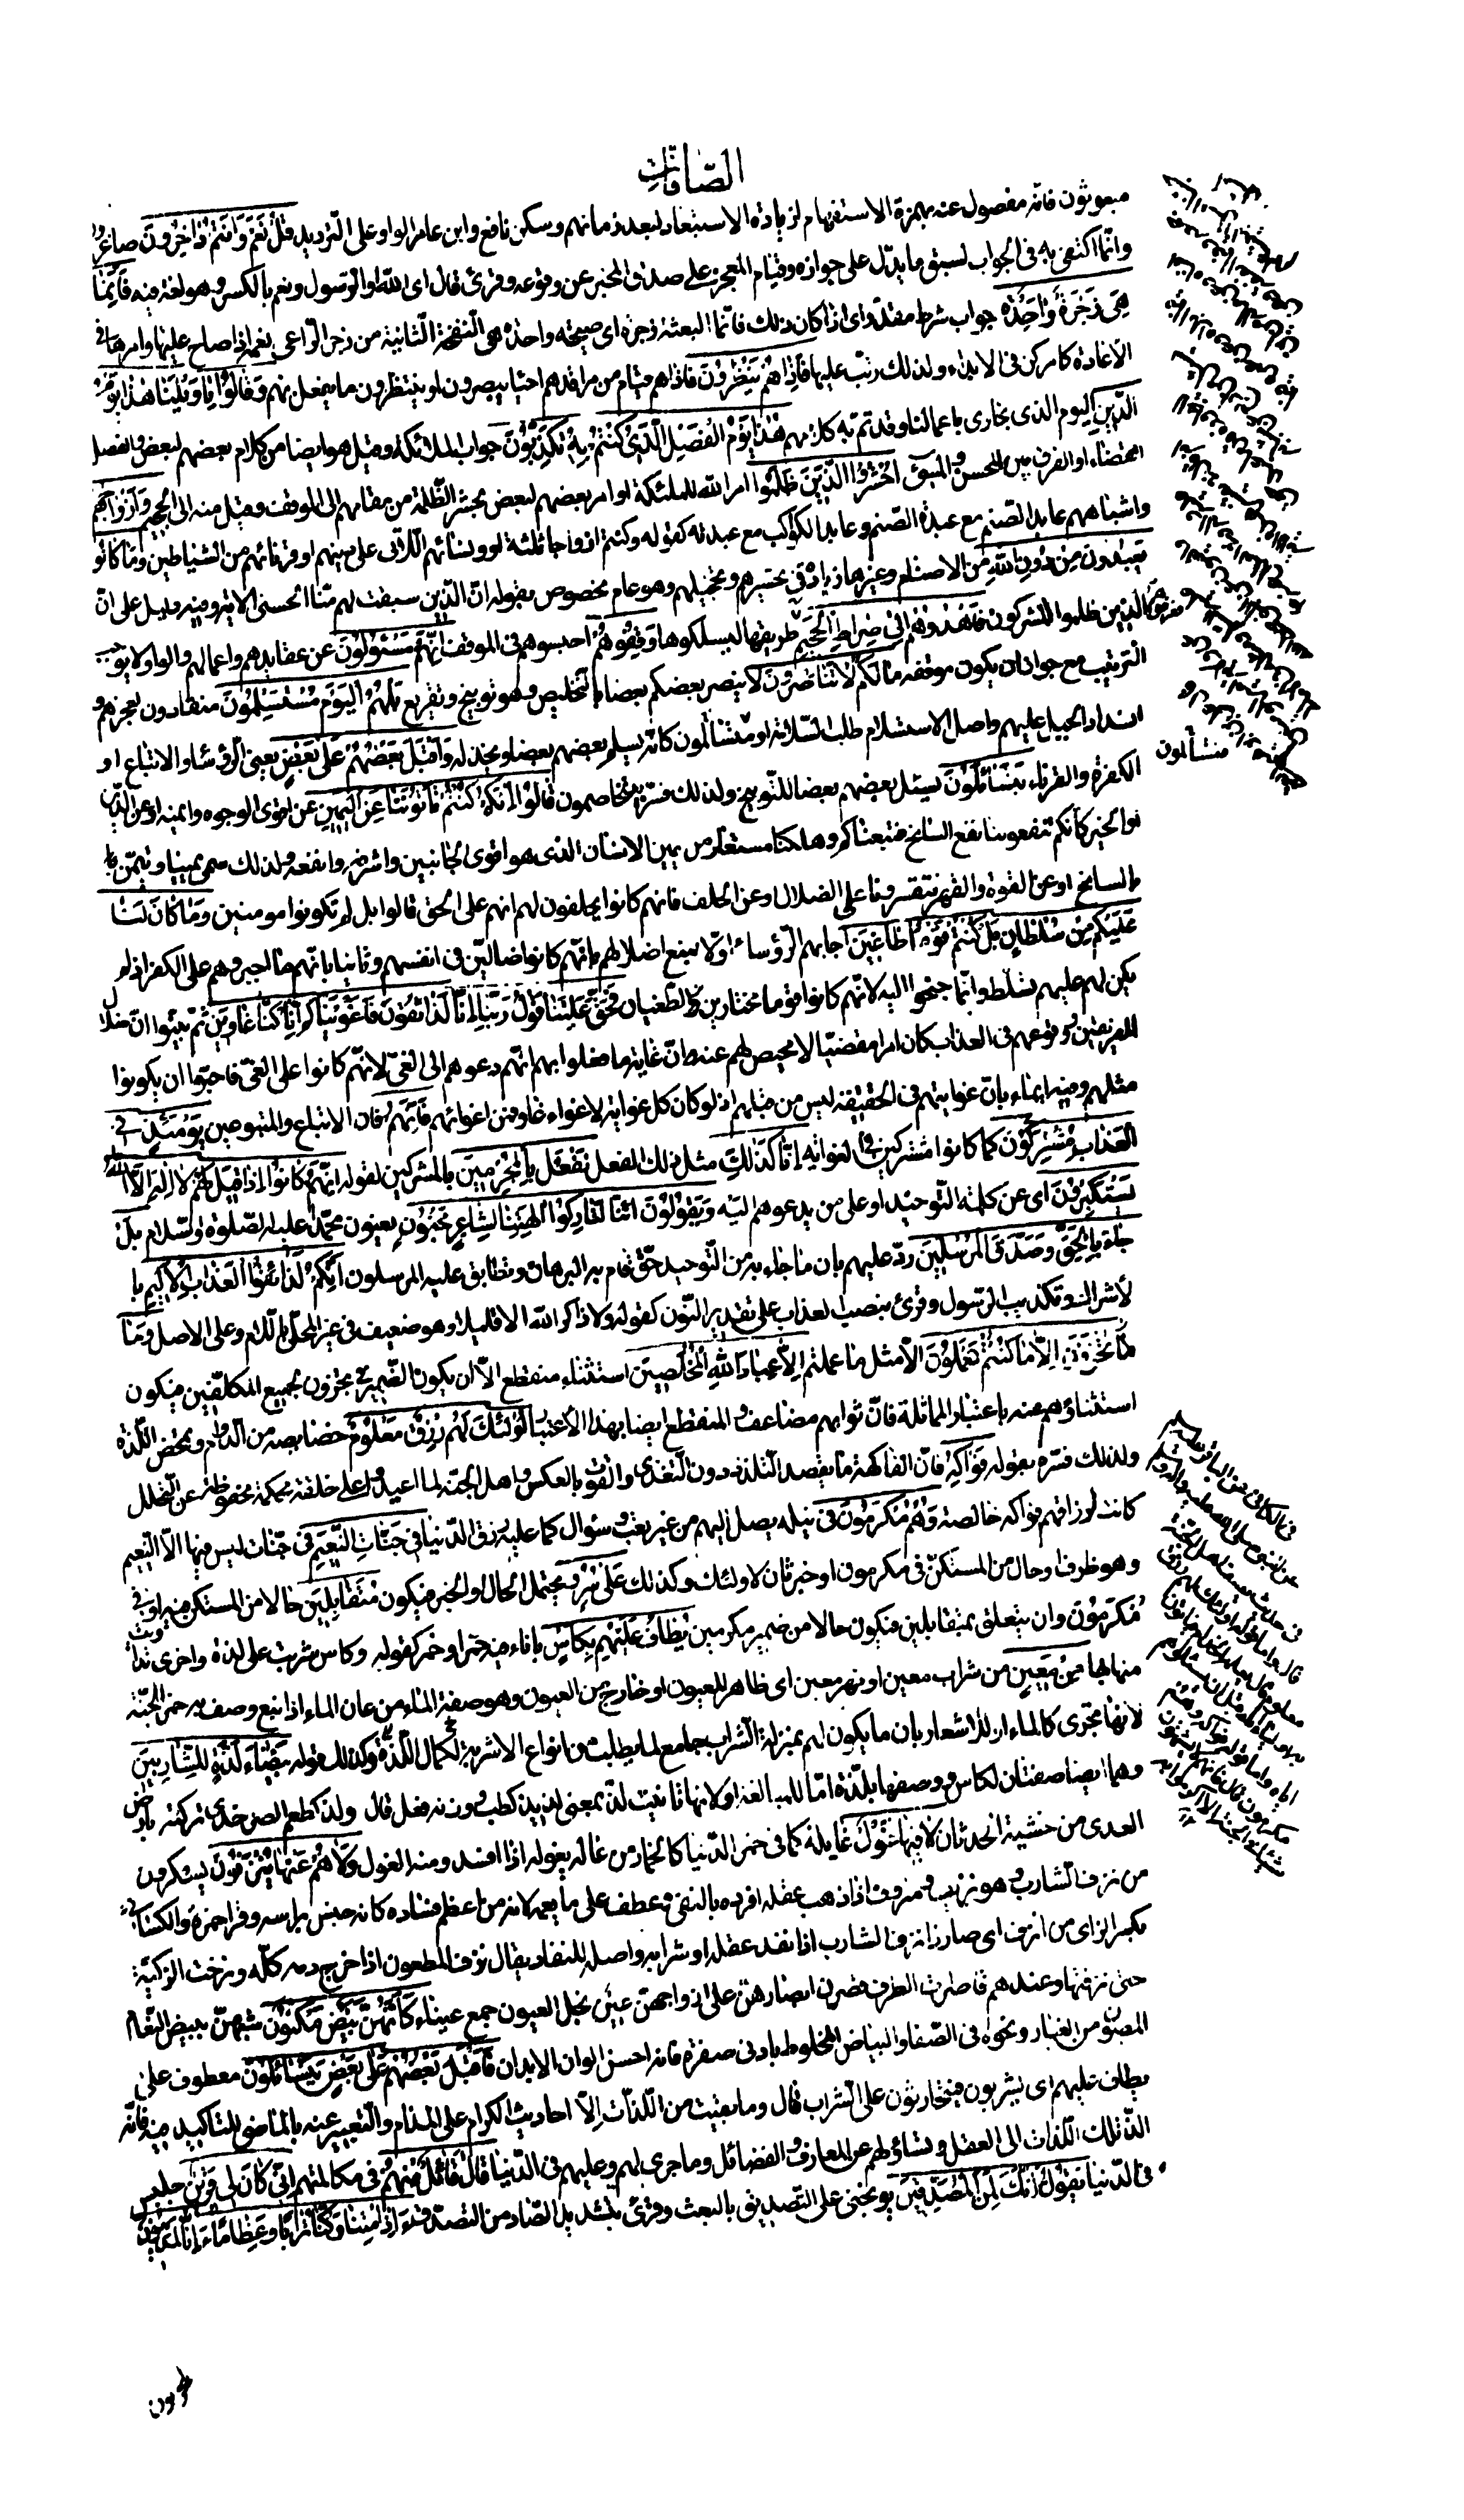 الصّافّات
مبعوثون فانّه مفصول عنه بهمزة الاستفهام لزيادة الاستبعاد لبعد زمانهم وسكن نافع وابن عامر الواو على الترديد قُلْ نَعَمْ وَأَنْتُمْ دَاخِرُونَ صاغرون
وانّما اكتفى به فى الجواب لسبق ما يدلّ على جوازه وقيام المعجز على صدق المخبر عن وقوعه وقرئ قال اى اللّه او الرّسول ونعم بالكسر وهو لغة فيه فَإِنَّمَا
هِىَ زَجْرَةٌ وَاحِدَةٌ جواب شرط مقدّر اى اذا كان ذلك فانّما البعثة زجرة اى صيحة واحدة هى النّفخة الثّانية من زجر الرّاعى غنمه اذا صاح عليها وامرها فى
الاعادة كامر كن فى الابداء ولذلك رتّب عليها فَإِذَا هُمْ يَنْظُرُونَ فاذا هم قيام من مراقدهم احياء يبصرون او ينتظرون ما يفعل بهم وَقَالُوا يَا وَيْلَنَا هٰذَا يَوْمُ
الدِّينِ اليوم الذى نجازى باعمالنا وقد تمّ به كلامهم هٰذَا يَوْمُ الْفَصْلِ الَّذِى كُنْتُمْ بِهِ تُكَذِّبُونَ جواب الملائكة وقيل هو ايضا من كلام بعضهم لبعض والفصل
القضاء او الفرق بين المحسن والمسئ احْشُرُوا الَّذِينَ ظَلَمُوا امر اللّه للملئكة او امر بعضهم لبعض بحشر الظّلمة من مقامهم الى الموقف وقيل منه الى الجحيم وَأَزْوَاجَهُمْ
واشباههم عابد الصّنم مع عبدة الصّنم وعابد الكواكب مع عبدته كقوله وكنتم ازواجا ثلثة او ونسائهم اللّاتى على دينهم او قرنائهم من الشّياطين وَمَا كَانُوا
يَعْبُدُونَ مِنْ دُونِ اللّٰهِ من الاصنام وغيرها زيادة فى تحسيرهم وتخجيلهم وهو عام مخصوص بقوله انّ الّذين سبقت لهم منّا الحسنى الاية وفيه دليل على انّ
الّذين ظلموا المشركون فَاهْدُوهُمْ إِلَى صِرَاطِ الْجَحِيمِ فعرّفوهم طريقها ليسلكوها وَقِفُوهُمْ احبسوهم فى الموقف إِنَّهُمْ مَسْئُولُونَ عن عقايدهم واعمالهم والواو لا يوجب
الترتيب مع جواز ان يكون موقفهم مَا لَكُمْ لَا تَنَاصَرُونَ لا ينصر بعضكم بعضا بالتخليص وهو توبيخ وتقريع بَلْ هُمُ الْيَوْمَ مُسْتَسْلِمُونَ منقادون لعجزهم و
انسداد الحيل عليهم واصل الاستسلام طلب السّلامة او متسالمون كانّه يسلم بعضهم بعضا ويخذله وَأَقْبَلَ بَعْضُهُمْ عَلَى بَعْضٍ يعنى الرّؤساء والاتباع او
الكفرة والقرناء يَتَسَائَلُونَ يسئل بعضهم بعضا للتّوبيخ ولذلك فسّر بيتخاصمون قَالُوا إِنَّكُمْ كُنْتُمْ تَأْتُونَنَا عَنِ الْيَمِينِ عن اقوى الوجوه وايمنه او عن الدّين
او الخير كانّكم تنفعوننا نفع السّانح فتبعناكم وهلكنا مستعار من يمين الانسان الذى هو اقوى الجانبين واشرفه وانفعه ولذلك سمى يمينا وتيمّن با
بالسانح او عن القوة والقهر فتقسروننا على الضلال او عن الحلف فانهم كانوا يحلفون لهم انهم على الحق قالوا بل لم تكونوا مومنين وَمَا كَانَ لَنَا
عَلَيْكُمْ مِنْ سُلْطَانٍ بَلْ كُنْتُمْ قَوْمًا طَاغِينَ اجابهم الرّؤساء اولا بمنع اضلالهم بانّهم كانوا ضالين فى انفسهم وثانيا بانّهم ما اجبروهم على الكفر اذ لم
يكن لهم عليهم تسلّط وانّما جنحوا اليه لانّهم كانوا قوما مختارين الطّغيان فَحَقَّ عَلَيْنَا قَوْلُ رَبِّنَا إِنَّا لَذَائِقُونَ فَأَغْوَيْنَاكُمْ إِنَّا كُنَّا غَاوِينَ ثمّ بيّنوا انّ ضلال
الفريقين ووقوعهم فى العذاب كان امرا مقضيّا لا محيص لهم عنه وانّ غاية ما فعلوا بهم انّهم دعوهم الى الغىّ لانّهم كانوا على الغىّ فاحبّوا ان يكونوا
مثلهم وفيه ايماء بانّ غوايتهم فى الحقيقة ليس من قبلهم اذ لو كان كل غواية لاغواء غاو فمن اغواهم فَإِنَّهُمْ فان الاتباع والمتبوعين يَوْمَئِذٍ فِى
الْعَذَابِ مُشْتَرِكُونَ كما كانوا مشتركين فى الغواية إِنَّا كَذٰلِكَ مثل ذلك الفعل نَفْعَلُ بِالْمُجْرِمِينَ بالمشركين لقوله إِنَّهُمْ كَانُوا إِذَا قِيلَ لَهُمْ لَا إِلٰهَ إِلَّا اللّٰهُ
يَسْتَكْبِرُونَ اى عن كلمة التّوحيد او على من يدعوهم اليه وَيَقُولُونَ ائِنَّا لَتَارِكُوا اٰلِهَتِنَا لِشَاعِرٍ مَجْنُونٍ يعنون محمّدا عليه الصّلوة والسّلام بَلْ
جَاءَ بِالْحَقِّ وَصَدَّقَ الْمُرْسَلِينَ ردّ عليهم بان ما جاء به من التّوحيد حقّ قام به البرهان وتطابق عليه المرسلون إِنَّكُمْ لَذَائِقُوا الْعَذَابِ الْأَلِيمِ با
لاشراك وتكذيب الرّسول وقرئ بنصب العذاب على تقدير النّون كقوله ولا ذاكر اللّه الا قليلا وهو ضعيف فى غير المحلّى باللّام وعلى الاصل وَمَا
تُجْزَوْنَ إِلَّا مَا كُنْتُمْ تَعْمَلُونَ الّا مثل ما عملتم إِلَّا عِبَادَ اللّٰهِ الْمُخْلَصِينَ استثناء منقطع الّا ان يكون الضّمير فى تجزون لجميع المكلّفين فيكون
استثناؤهم عنه باعتبار المماثلة فانّ ثوابهم مضاعف والمنقطع ايضا بهذا الاعتبار أُولٰئِكَ لَهُمْ رِزْقٌ مَعْلُومٌ خصائصه من الدّوام وتمحّض اللّذة
ولذلك فسّره بقوله فَوَاكِهُ فانّ الفاكهة ما يقصد للتلذذ دون التّغذى والقوت بالعكس واهل الجنّة لما اعيدوا على خلقة محكمة محفوظة عن التّحلل
كانت ارزاقهم فواكه خالصة وَهُمْ مُكْرَمُونَ فى نيله يصل اليهم من غير تعب وسئوال كما عليه رزق الدّنيا فِى جَنَّاتِ النَّعِيمِ فى جنّات ليس فيها الّا النّعيم
وهو ظرف او حال من المستكنّ فى مكرمون او خبر ثان لاولئك وكذلك عَلَى سُرُرٍ ويحتمل الحال او الخبر فيكون مُتَقَابِلِينَ حالا من المستكن فيه او فى
مُكْرَمُونَ وان يتعلق بمتقابلين فيكون حالا من ضمير مكرمين يُطَافُ عَلَيْهِمْ بِكَأْسٍ باناء فيه خمر او خمر كقوله وكاس شربت على لذة واخرى تداويت
منها بها مِنْ مَعِينٍ من شراب معين او نهر معين اى ظاهر للعيون او خارج من العيون وهو صفة الماء من عان الماء اذا نبع وصف به خمر الجنّة
لانها تجرى كالماء او للاشعار بان ما يكون لهم بمنزلة الشّراب جامع لما يطلب من انواع الاشربة لكمال اللّذة وكذلك قوله بَيْضَاءَ لَذَّةٍ لِلشَّارِبِينَ
وهما ايضا صفتان لكاس ووصفها بلذّة امّا للمبالغة او لانها تانيث لذّ بمعنى لذيذ كطب وزنه فعل قال ولذ كطعم الصرخدى تركته بارض
العدى من خشية الحدثان لَا فِيهَا غَوْلٌ غايلة كما فى خمر الدّنيا كالخمار من غاله يغوله اذا افسده ومنه الغول وَلَا هُمْ عَنْهَا يُنْزَفُونَ يسكرون
من نزف الشّارب فهو نزيف ومنزوف اذا ذهب عقله افرده بالنفى وعطف على ما يعمه لانه من اعظم فساده كانه جنس براسه وقرا حمزة والكسائى
بكسر الزاى من انزف اى صار ذا نزف الشارب اذا نفد عقله او شرابه واصله للنفاد يقال نزف المطعون اذا خرج دمه كلّه ونزحت الركيّة
حتى نزفتها وعندهم قاصرات الطرف قصرن ابصارهن على ازواجهن عِينٌ نجل العيون جمع عيناء كَأَنَّهُنَّ بَيْضٌ مَكْنُونٌ شبّههنّ ببيض النّعام
المصون من الغبار ونحوه فى الصّفاء والبياض المخلوط بادنى صفرة فانه احسن الوان الابدان فَأَقْبَلَ بَعْضُهُمْ عَلَى بَعْضٍ يَتَسَائَلُونَ معطوف على
يطاف عليهم اى يشربون فيتحادثون على الشّراب قال وما بقيت من اللّذّات الّا احاديث الكرام على المدام والتّعبير عنه بالماضى للتاكيد فيه فانّه
الذّ تلك اللّذات الى العقل وتساؤلهم عن المعارف والفضائل وما جرى لهم وعليهم فى الدّنيا قَالَ قَائِلٌ مِنْهُمْ فى مكالمتهم إِنِّى كَانَ لِى قَرِينٌ جليس
فى الدّنيا يَقُولُ أَئِنَّكَ لَمِنَ الْمُصَدِّقِينَ يوبخنى على التّصديق بالبعث وقرئ بتشديد الصّاد من التصدّق ءَإِذَا مِتْنَا وَكُنَّا تُرَابًا وَعِظَامًا ءَإِنَّا لَمَدِينُونَ
متسالمون